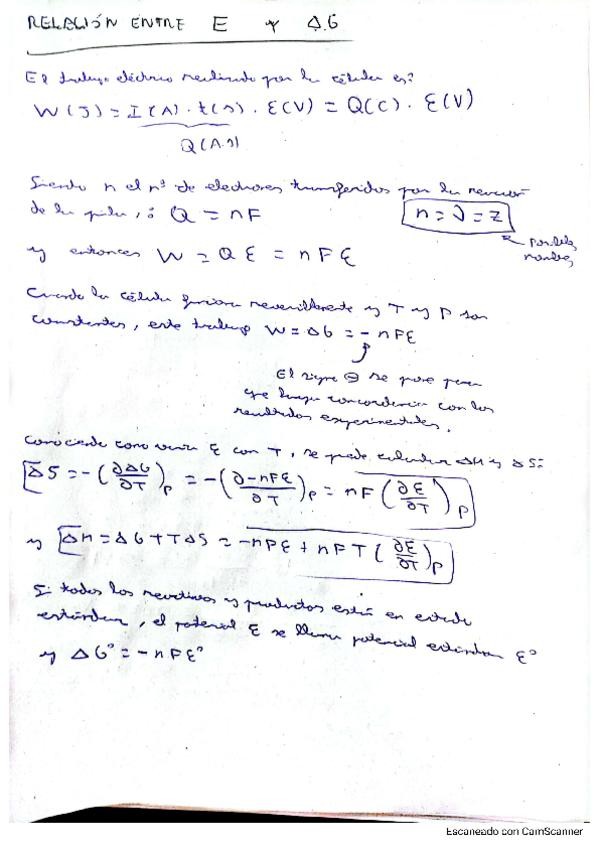 RELACIÓN ENTRE E Y ΔG
El trabajo eléctrico realizado por la célula es:
W(J) = I(A) · t(s) · E(V) = Q(C) · E(V)
Q(A.s)
Siendo n el nº de electrones transferidos por la reacción
de la pila, : Q = nF n = ν = z
y entonces W = QE = nFE
Cuando la célula funciona reversiblemente y T y P son
constantes, este trabajo W = ΔG = - nFE
El signo ⊖ se pone para
que haya concordancia con los
resultados experimentales.
Conociendo como varía E con T, se puede calcular ΔH y ΔS:
ΔS = -(∂ΔG/∂T)P = -(∂-nFE/∂T)P = nF(∂E/∂T)P
y ΔH = ΔG + TΔS = -nFE + nFT(∂E/∂T)P
Si todos los reactivos y productos están en estado
estándar, el potencial E se llama potencial estándar E°
y ΔG° = -nFE°
Escaneado con CamScanner